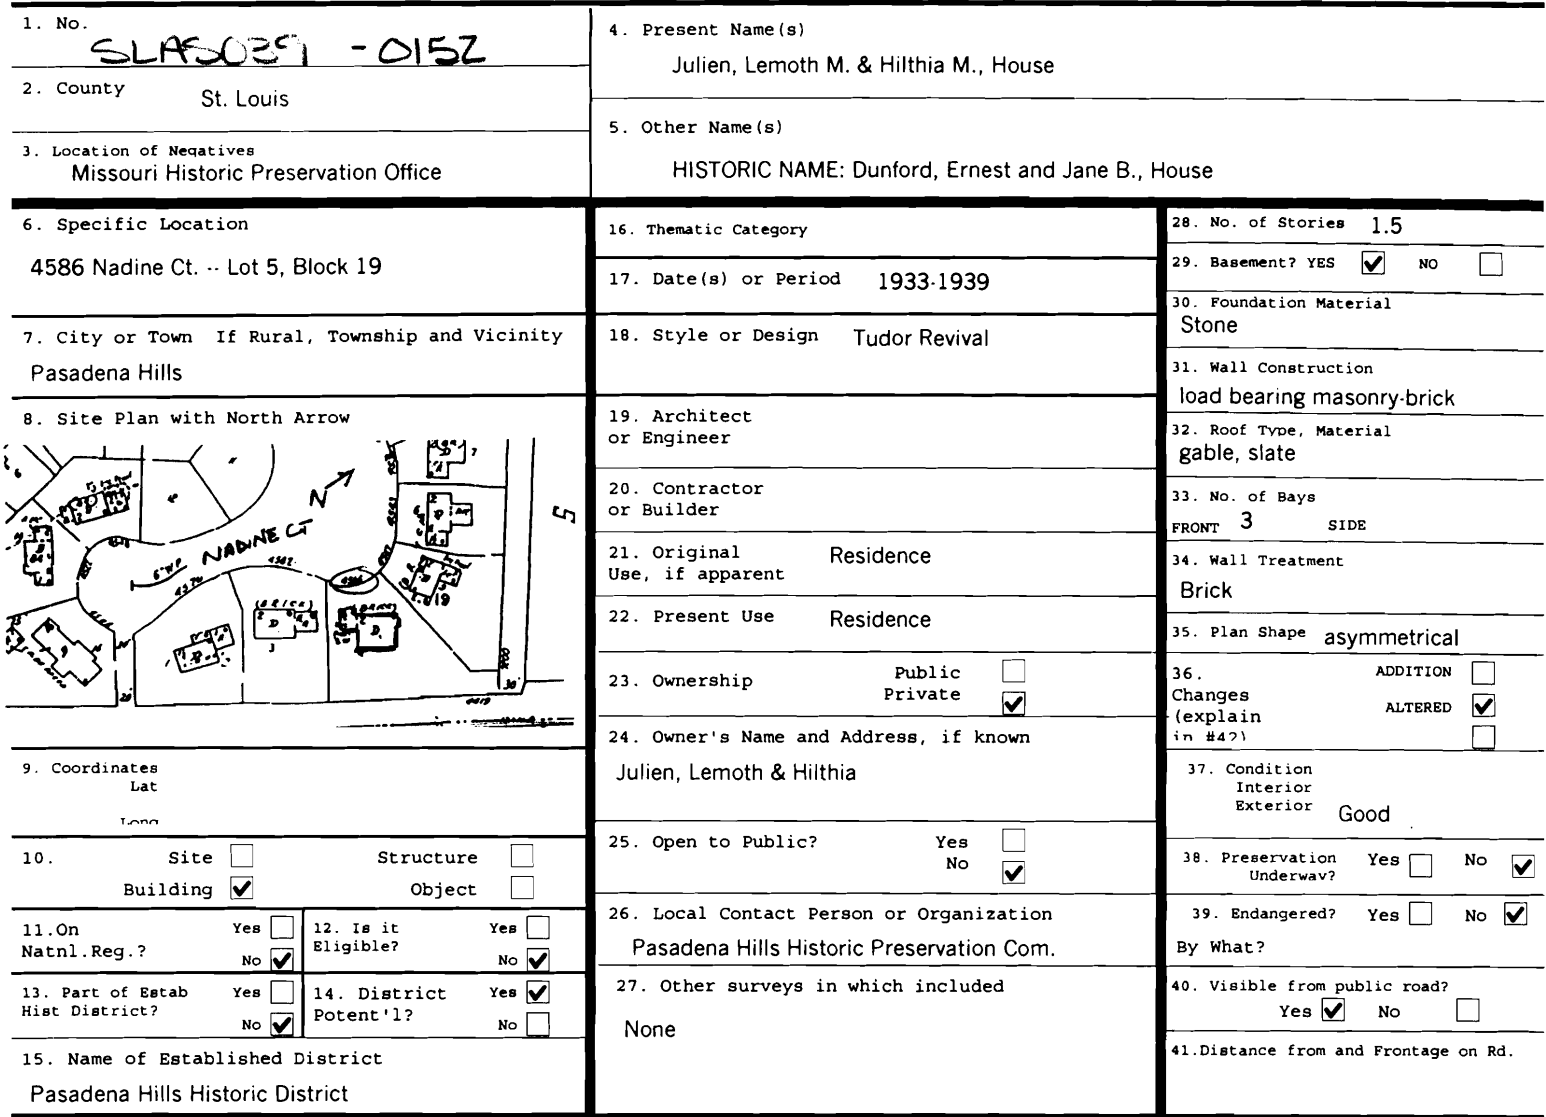 1. No.
SLAS039 -0152
2. County
St. Louis
3. Location of Negatives
Missouri Historic Preservation Office
4. Present Name(s)
Julien, Lemoth M. & Hilthia M., House
5. Other Name(s)
HISTORIC NAME: Dunford, Ernest and Jane B., House
6. Specific Location
4586 Nadine Ct. -- Lot 5, Block 19
7. City or Town If Rural, Township and Vicinity
Pasadena Hills
8. Site Plan with North Arrow
N
NADINE CT
6" W.P
4576
4582
4586
19
30'
20'
9. Coordinates
Lat
Long
10. Site Structure
Building ✔ Object
11.On Yes
Natnl.Reg.?
No ✔
12. Is it Yes
Eligible?
No ✔
13. Part of Estab Yes
Hist District?
No ✔
14. District Yes ✔
Potent'l?
No
15. Name of Established District
Pasadena Hills Historic District
16. Thematic Category
17. Date(s) or Period 1933-1939
18. Style or Design Tudor Revival
19. Architect
or Engineer
20. Contractor
or Builder
21. Original Residence
Use, if apparent
22. Present Use Residence
23. Ownership Public
Private ✔
24. Owner's Name and Address, if known
Julien, Lemoth & Hilthia
25. Open to Public? Yes
No ✔
26. Local Contact Person or Organization
Pasadena Hills Historic Preservation Com.
27. Other surveys in which included
None
28. No. of Stories 1.5
29. Basement? YES ✔ NO
30. Foundation Material
Stone
31. Wall Construction
load bearing masonry-brick
32. Roof Type, Material
gable, slate
33. No. of Bays
FRONT 3 SIDE
34. Wall Treatment
Brick
35. Plan Shape asymmetrical
36. ADDITION
Changes
(explain ALTERED ✔
in #42)
37. Condition
Interior
Exterior Good
38. Preservation Yes No ✔
Underway?
39. Endangered? Yes No ✔
By What?
40. Visible from public road?
Yes ✔ No
41.Distance from and Frontage on Rd.